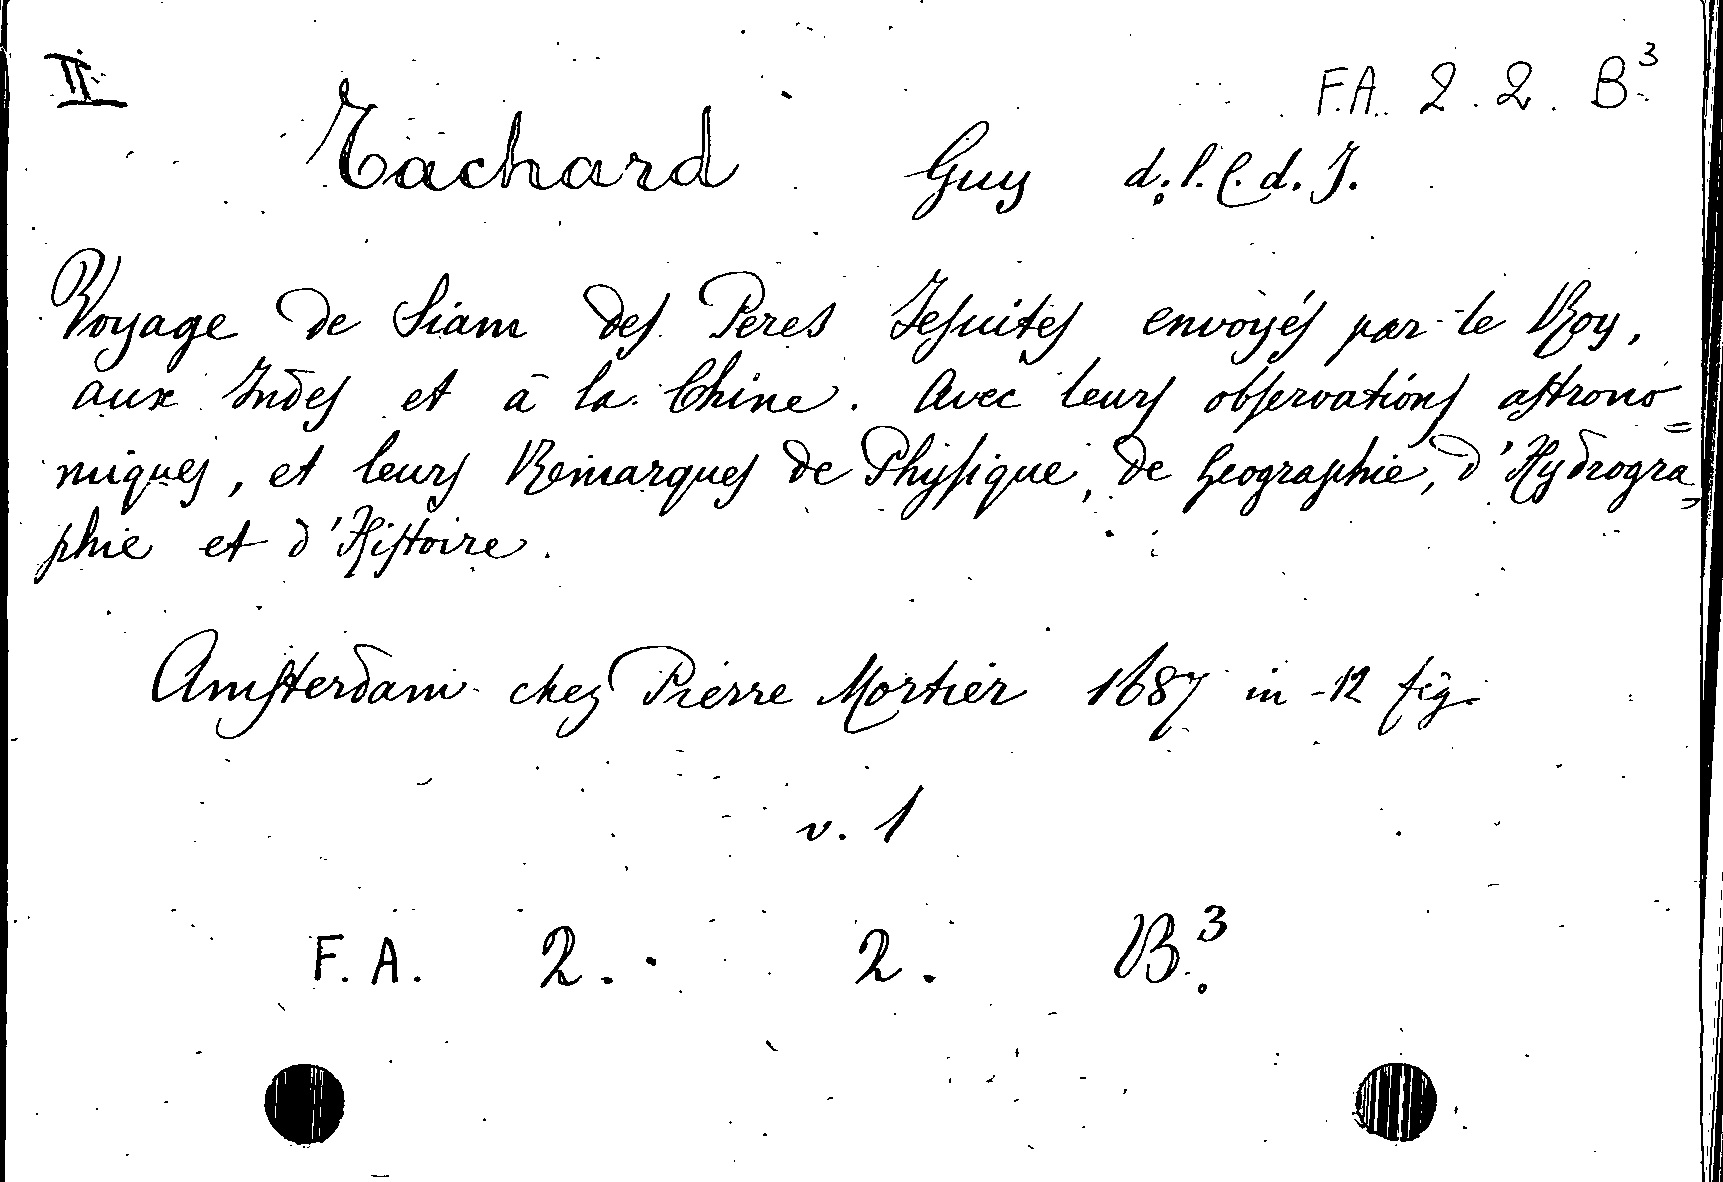 II
F.A. 2. 2. B³
Tachard Guy d.l.C.d.J.
Voyage de Siam des Peres Jesuites envoyés par le Roy,
aux Indes et à la Chine. Avec leurs observations astrono=
miques, et leurs Remarques de Physique, de Geographie, d'Hydrogra=
phie et d'Histoire.
Amsterdam chez Pierre Mortier 1687 in-12 fig.
v. 1
F. A. 2. 2. B³.